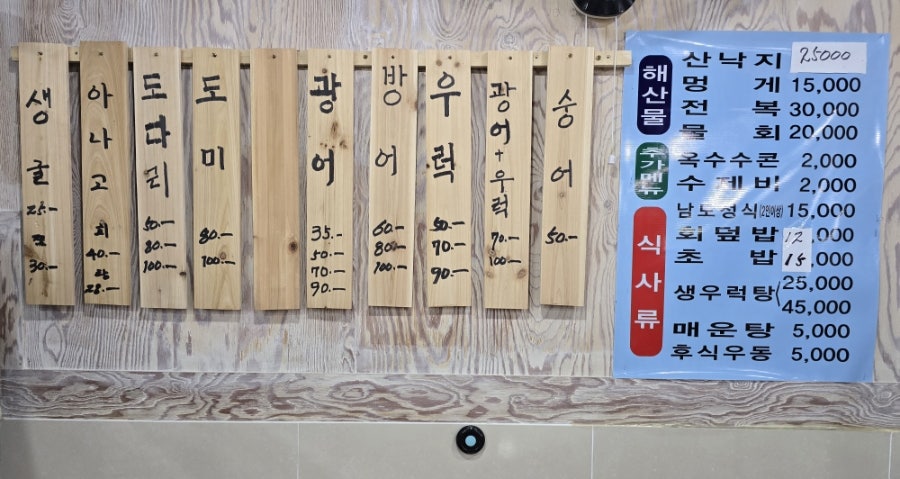 생굴
25.-
30.-
아나고
회
40.-
28.-
도다리
50.-
80.-
100.-
도미
80.-
100.-
광어
35.-
50.-
70.-
90.-
방어
60.-
80.-
100.-
우럭
50.-
70.-
90.-
광어+우럭
70.-
100.-
숭어
50.-
해산물
산낙지 25000
멍게 15,000
전복 30,000
물회 20,000
추가메뉴
옥수수콘 2,000
수제비 2,000
식사류
남도정식(2인이상) 15,000
회덮밥 12,000
초밥 15,000
생우럭탕 (25,000
45,000
매운탕 5,000
후식우동 5,000